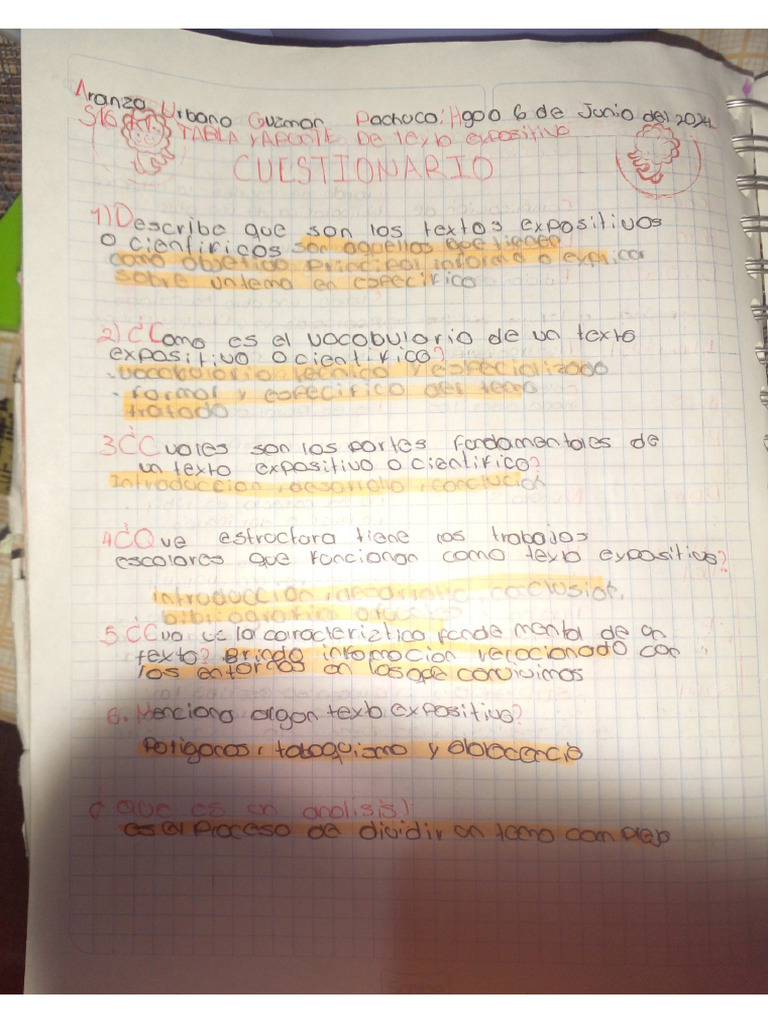 Aranza Urbano Guzman Pachuca: Hgo a 6 de Junio del 2024
S16 TABLA Y APUNTE De texto expositivo
CUESTIONARIO
1) Describe que son los textos expositivos
o cientificos son aquellos que tienen
como objetivo principal informa o explica
sobre un tema en especifico
2) ¿Como es el vocabulario de un texto
expositivo o cientifico?
-vocabulario tecnico y especializado
- formal y especifico del tema
tratado
3 ¿Cuales son las partes fundamentales de
un texto expositivo o cientifico?
Introduccion, desarrollo, conclucion
4 ¿Que estructura tiene los trabajos
escolares que funcionan como texto expositivo?
introduccion, desarrollo, conclusion,
bibliografia
5. ¿Cua es la caracteriztica fundemental de un
texto? Brinda informacion veracionada con
los entornos en los que convivimos
6. Menciona algun texto expositivo?
Poligonos, tabaquismo y
¿ que es un analisis)
es el proceso de dividir un tema complejo